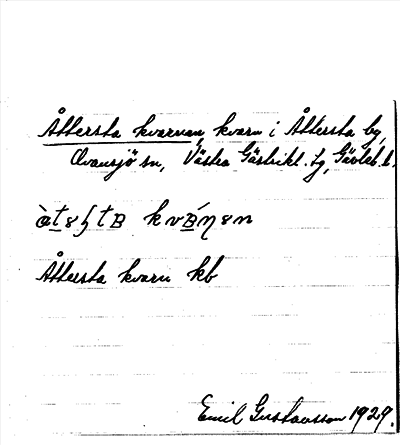 Åttersta kvarnen, kvarn i Åttersta by,
Ovansjö sn, Västra Gästrikl. tg, Gävleb. l.
Åttersta kvarn kb
Emil Gustavsson 1929.